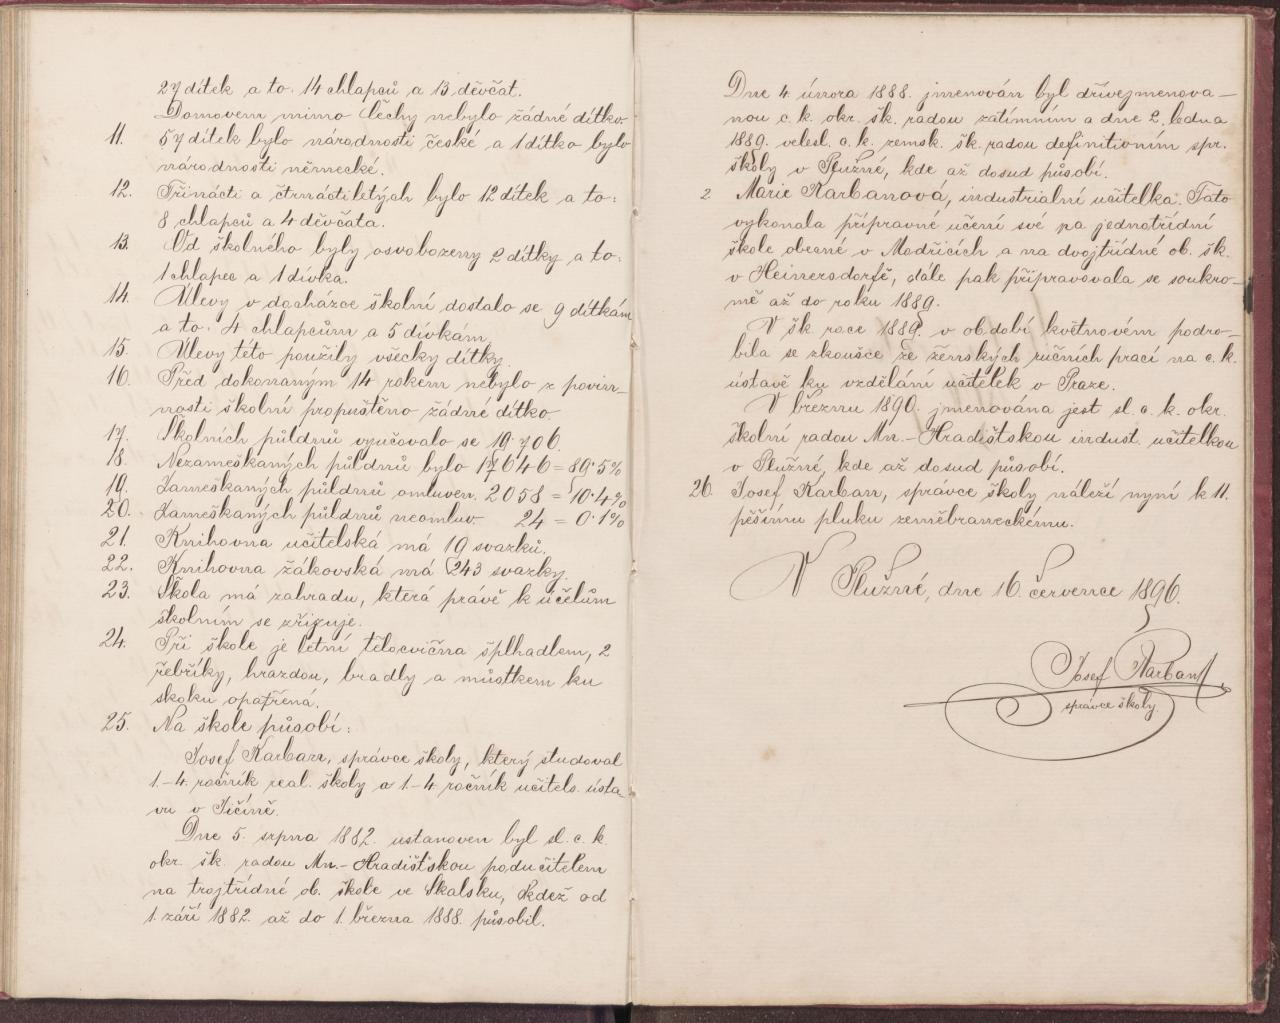 27 dítek a to: 14 chlapců a 13 děvčat.
Domovem mimo Čechy nebylo žádné dítko.
11. 57 dítek bylo národnosti české a 1 dítko bylo
národnosti německé.
12. Třinácti a čtrnáctiletých bylo 12 dítek a to:
8 chlapců a 4 děvčata.
13. Od školného byly osvobozeny 2 dítky a to:
1 chlapec a 1 dívka.
14. Úlevy v docházce školní dostalo se 9 dítkám
a to: 4 chlapcům a 5 dívkám.
15. Úlevy této použily všecky dítky.
16. Před dokonaným 14 rokem nebylo z povin-
nosti školní propuštěno žádné dítko.
17. Školních půldnů vyučovalo se 19.706.
18. Nezameškaných půldnů bylo 17646 = 89.5%
19. Zameškaných půldnů omluven. 2058 = 10.4%
20. Zameškaných půldnů neomluv. 24 = 0.1%
21. Knihovna učitelská má 19 svazků.
22. Knihovna žákovská má 243 svazky.
23. Škola má zahradu, která právě k účelům
školním se zřizuje.
24. Při škole je letní tělocvična šplhadlem, 2
řebříky, hrazdou, bradly a můstkem ku
skoku opatřená.
25. Na škole působí:
Josef Karban, správce školy, který študoval
1.-4. ročník real. školy a 1.-4. ročník učitels. ústa-
vu v Jičíně.
Dne 5. srpna 1882. ustanoven byl sl. c. k.
okr. šk. radou Mn.-Hradištskou podučitelem
na trojtřídné ob. škole ve Skalsku, kdež od
1. září 1882. až do 1. března 1888. působil.
Dne 4. února 1888. jmenován byl dřívejmenova-
nou c. k. okr. šk. radou zatímním a dne 2. ledna
1889. velesl. c. k. zemsk. šk. radou definitivním spr.
školy v Plužné, kde až dosud působí.
2. Marie Karbanová, industrialní učitelka. Tato
vykonala přípravné učení své na jednotřídní
škole obecné v Modřicích a na dvojtřídné ob. šk.
v Heinersdorfě, dále pak připravovala se soukro-
mě až do roku 1889.
V šk. roce 1889. v období květnovém podro-
bila se zkoušce ze ženských ručních prací na c. k.
ústavě ku vzdělání učitelek v Praze.
V březnu 1890. jmenována jest sl. c. k. okr.
školní radou Mn.-Hradištskou indust. učitelkou
v Plužné, kde až dosud působí.
26. Josef Karban, správce školy náleží nyní k 11.
pěšímu pluku zeměbraneckému.
V Plužné, dne 16. července 1896.
Josef Karban,
správce školy.